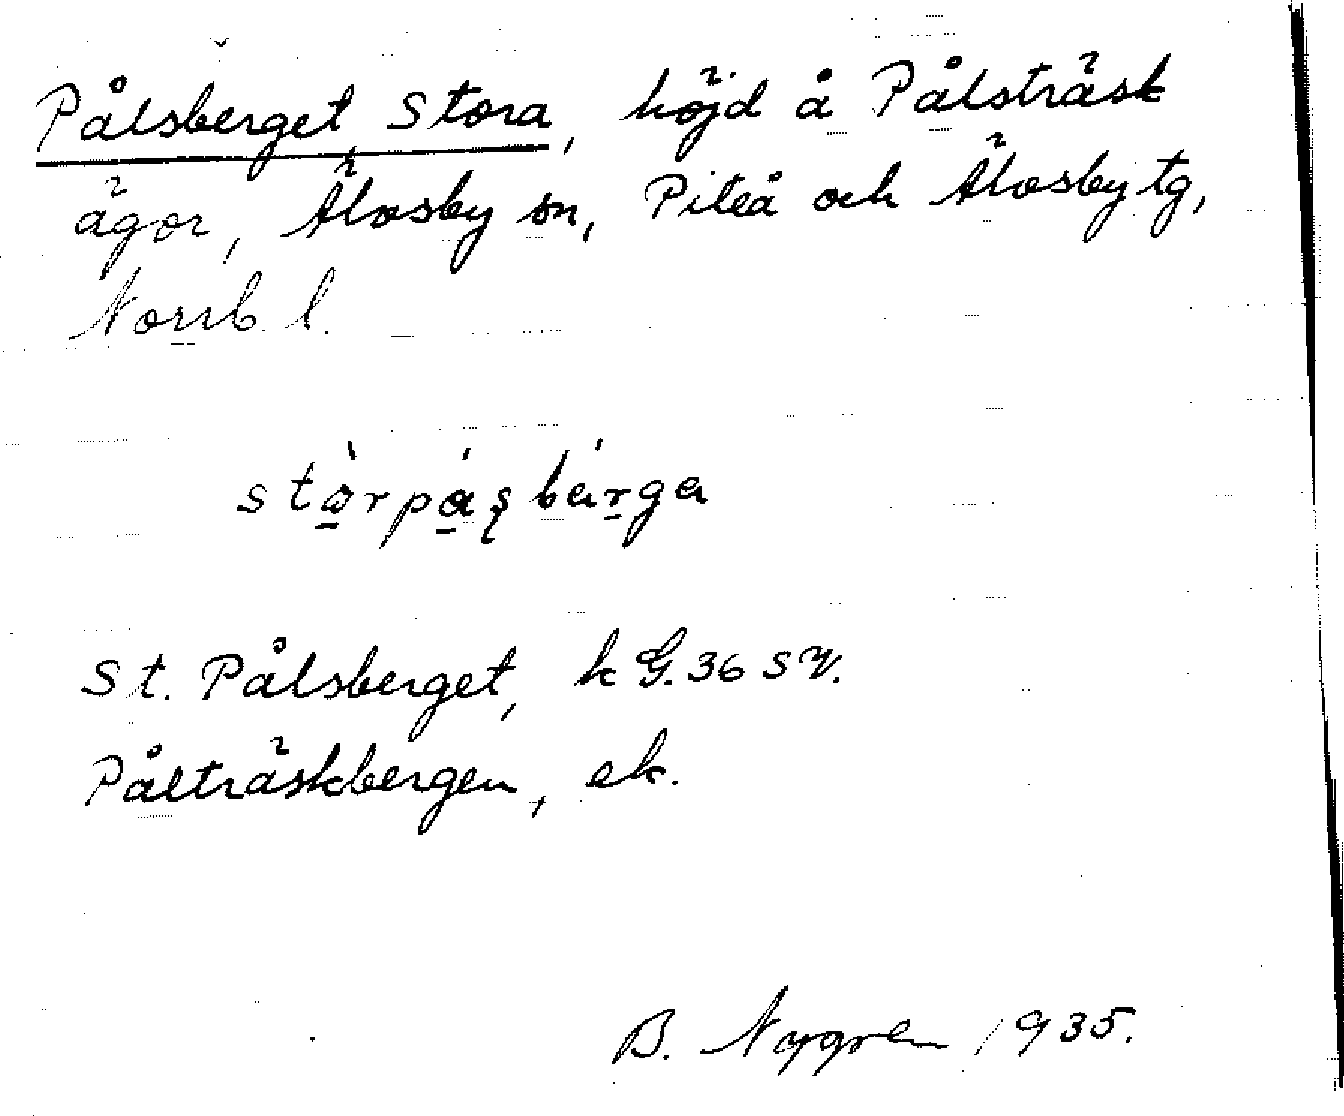 Pålsberget Stora, höjd å Pålsträsk
ägor, Älvsby sn, Piteå och Älvsby tg,
Norrb. l.
stòrpásbárga
St. Pålsberget, k G. 36 SV.
Pålträskbergen, ek.
B. Nygren 1935.